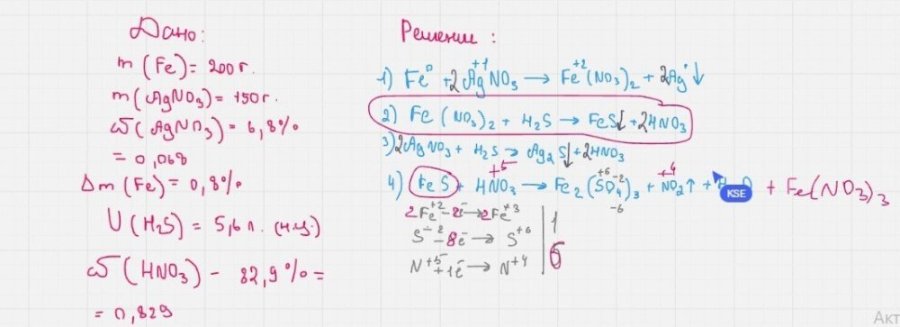 Дано:
m (Fe) = 200 г.
m(AgNO₃) = 150 г.
ω (AgNO₃) = 6,8%
= 0,068
Δm (Fe) = 0,8%
U (H₂S) = 5,6 л. (н.у.)
ω (HNO₃) - 82,9% =
= 0,829
Решении :
1) Fe⁰ + 2Ag⁺¹NO₃ → Fe⁺²(NO₃)₂ + 2Ag⁰↓
2) Fe (NO₃)₂ + H₂S → FeS↓ + 2HNO₃
3) 2AgNO₃ + H₂S → Ag₂S↓ + 2HNO₃
4) FeS + HN⁺⁵O₃ → Fe₂(S⁺⁶O₄⁻²)₃ + N⁺⁴O₂↑ + + Fe(NO₃)₃
-6
KSE
2Fe⁺² - 2ē → 2Fe⁺³ | 1
S⁻² - 8ē → S⁺⁶
N⁺⁵ + 1ē → N⁺⁴
Акт